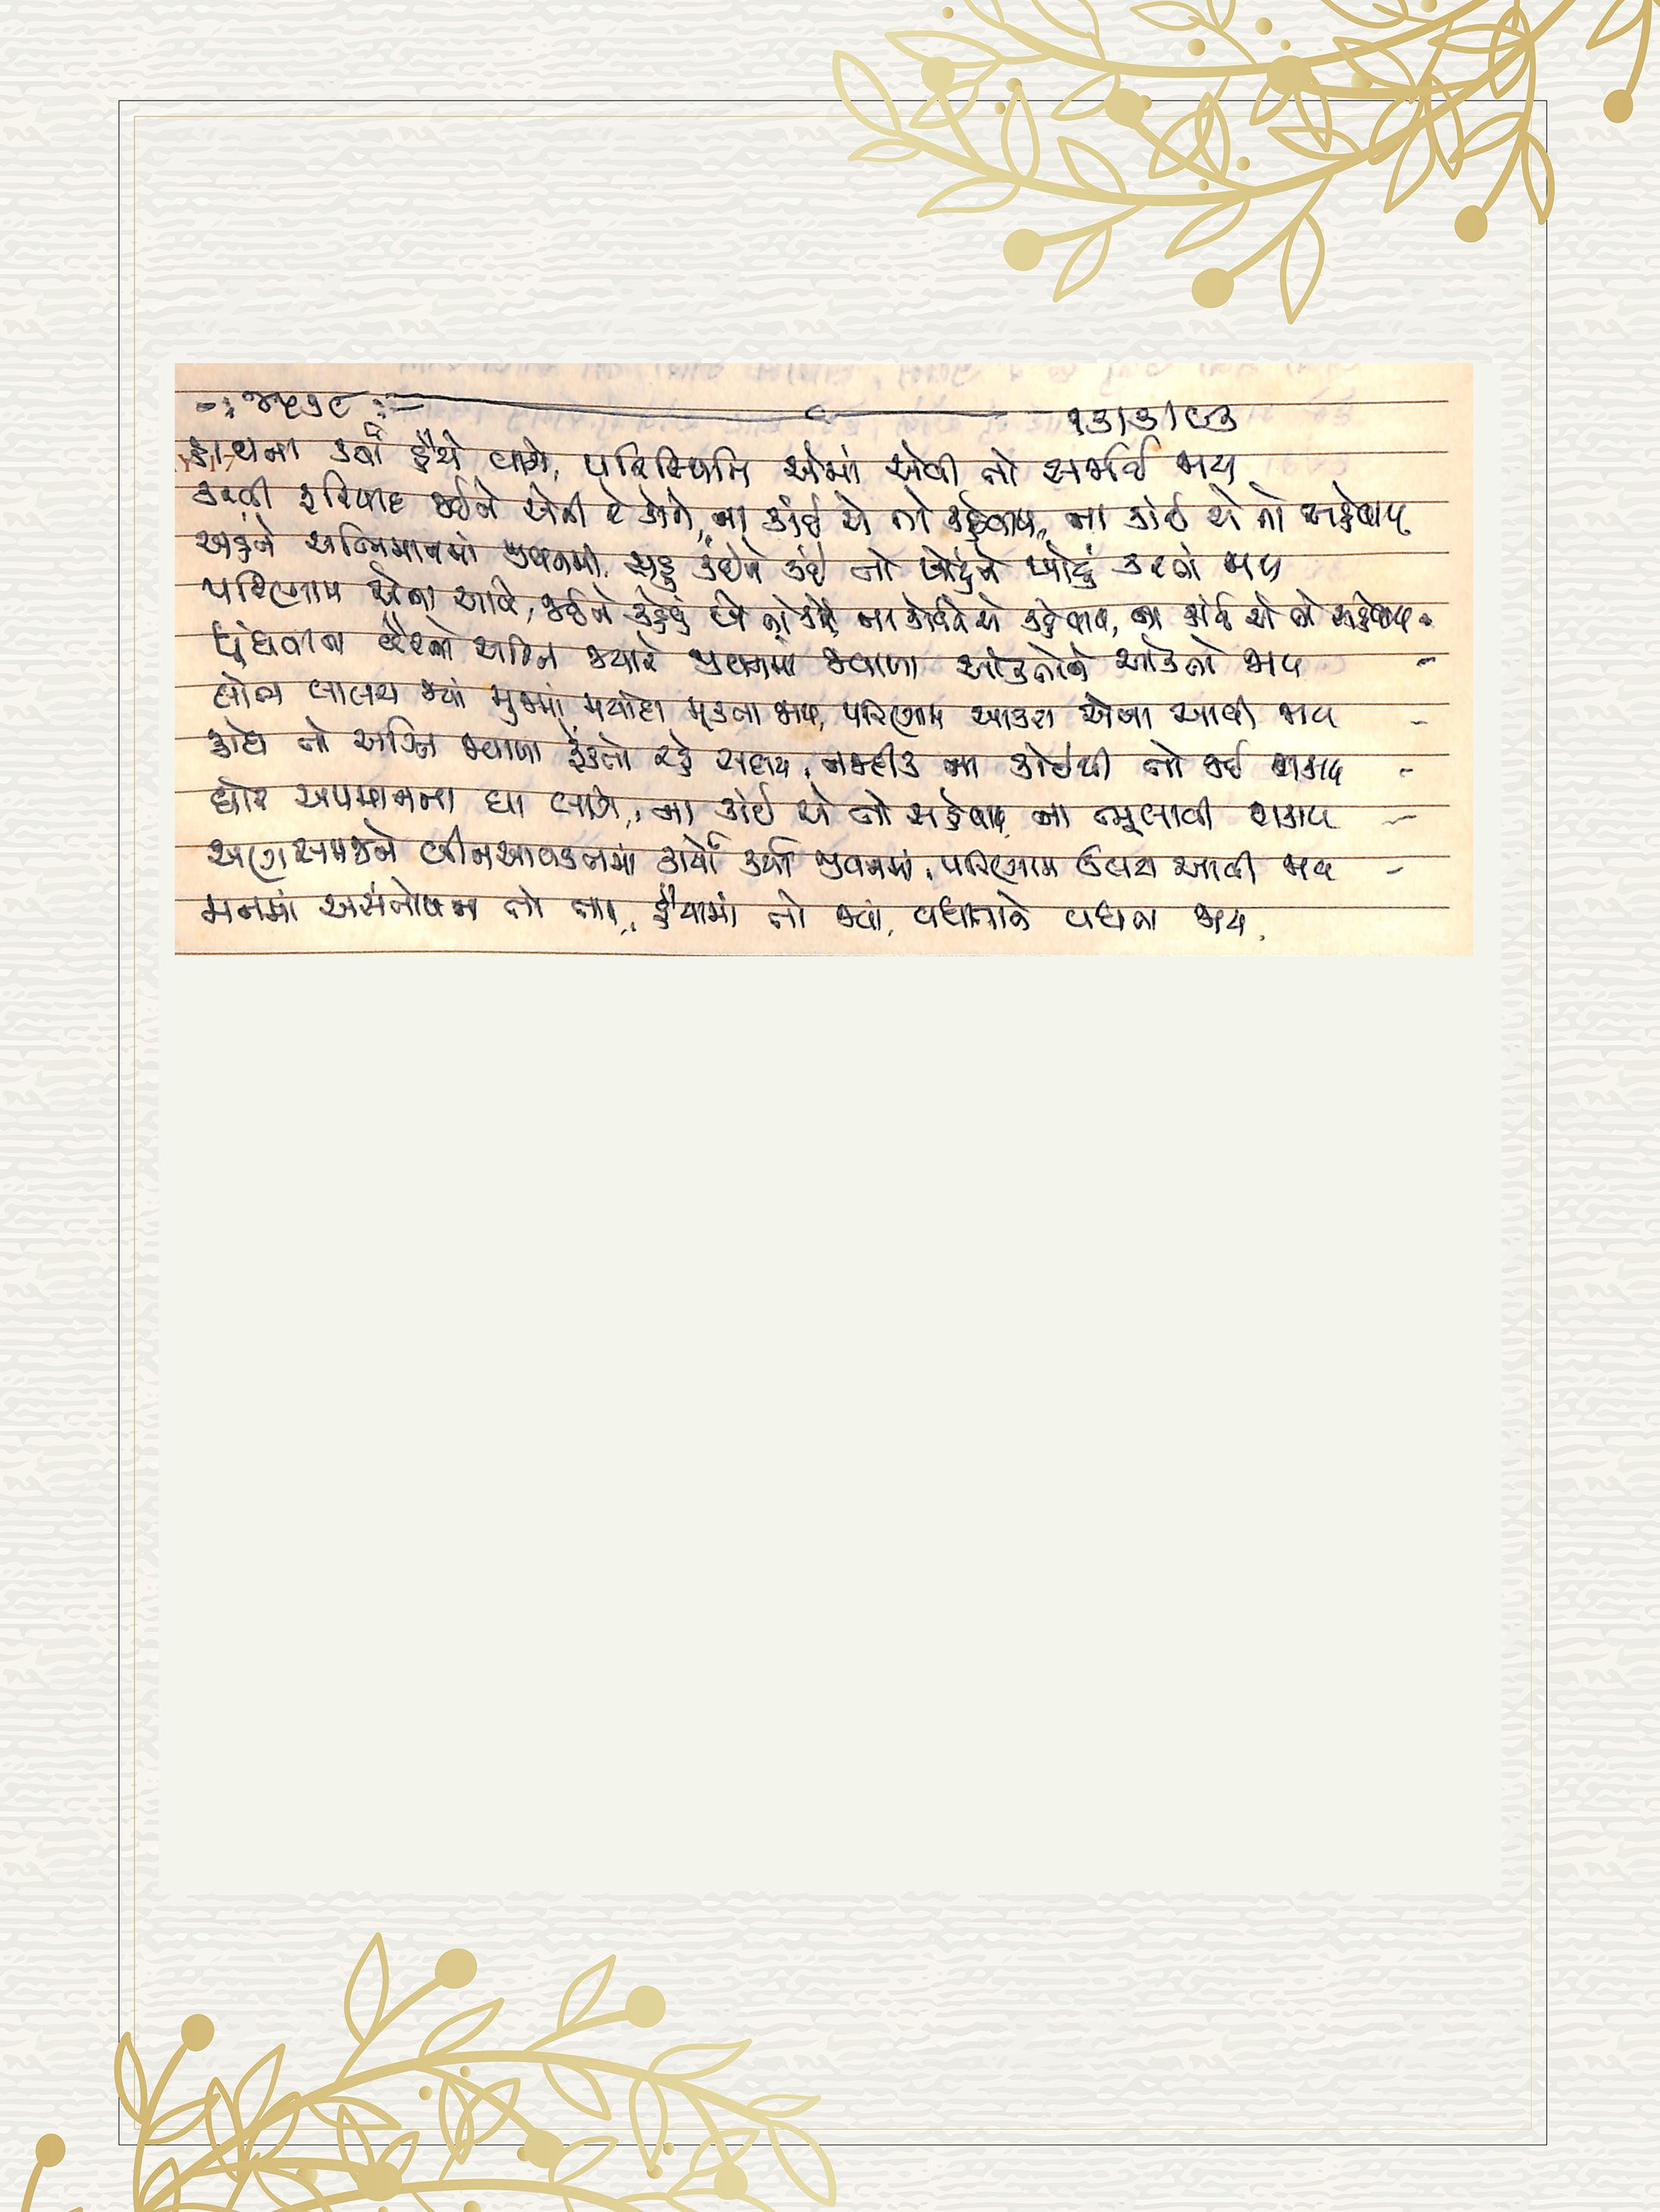 -: ૪૫૭૯ :- ૧૩।૩।૯૩
હાથના કર્યા હૈયે વાગે, પરિસ્થિતિ એમાં એવી તો સર્જાઈ જાય
કરવી ફરિયાદ જઈને એની રે કોને, ના કાંઈ એ તો કહેવાય, ના કાંઈ એ તો સહેવાય
અહંને અભિમાનમાં જીવનમાં, સહુ કંઈને કંઈ તો ખોટુંને ખોટું કરતો જાય
પરિણામ એના આવે, જઈને કહેવું એ તો કોને ના કોઈને એ કહેવાય, ના કાંઈ એ તો સહેવાય
ધૂંધવાતા વૈરનો અગ્નિ જ્યારે જીવનમાં જ્વાળા ઓકતોને ઓકતો જાય
લોભ લાલચ જ્યાં મુજમાં મર્યાદા મૂકતા જાય, પરિણામ આકરા એના આવી જાય
ક્રોધ તો અગ્નિ જ્વાળા ફેંકતો રહે સદાય, નજદીક ના કોઈથી તો જઈ શકાય
ઘોર અપમાનના ઘા લાગે, ના કાંઈ એ તો સહેવાય ના ભુલાવી શકાય
અણસમજને બીનઆવડતમાં કાર્યો કર્યા જીવનમાં, પરિણામ ઉલટા આવી જાય
મનમાં અસંતોષના તો નાગ, હૈયામાં તો જ્યાં, વધતાને વધતા જાય